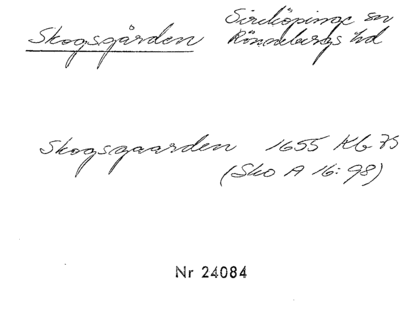 Skogsgården Sireköpinge sn
Rönnebergs hd
Skogsgaarden 1655 Kb 75
(Sko A 16:98)
Nr 24084